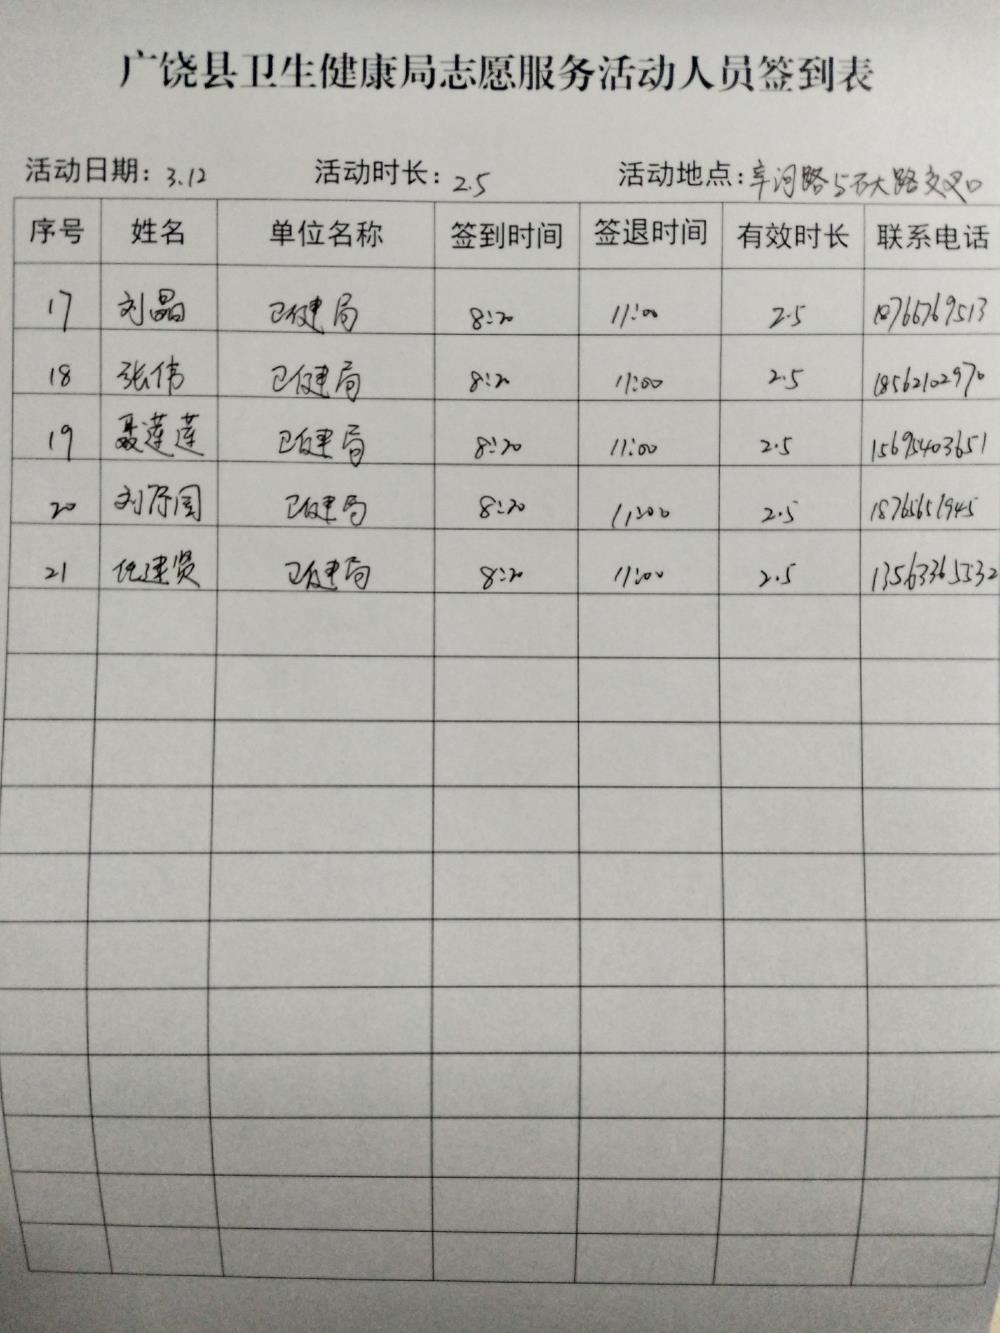 广饶县卫生健康局志愿服务活动人员签到表
活动日期：3.12 活动时长：2.5 活动地点：辛河路与石大路交叉口
序号 姓名 单位名称 签到时间 签退时间 有效时长 联系电话
17 刘晶 卫健局 8:20 11:00 2.5 18766769513
18 张伟 卫健局 8:20 11:00 2.5 18562102970
19 聂莲莲 卫健局 8:20 11:00 2.5 15695403651
20 刘 卫健局 8:20 11:00 2.5 18765651945
21 任建贤 卫健局 8:20 11:00 2.5 13563365532